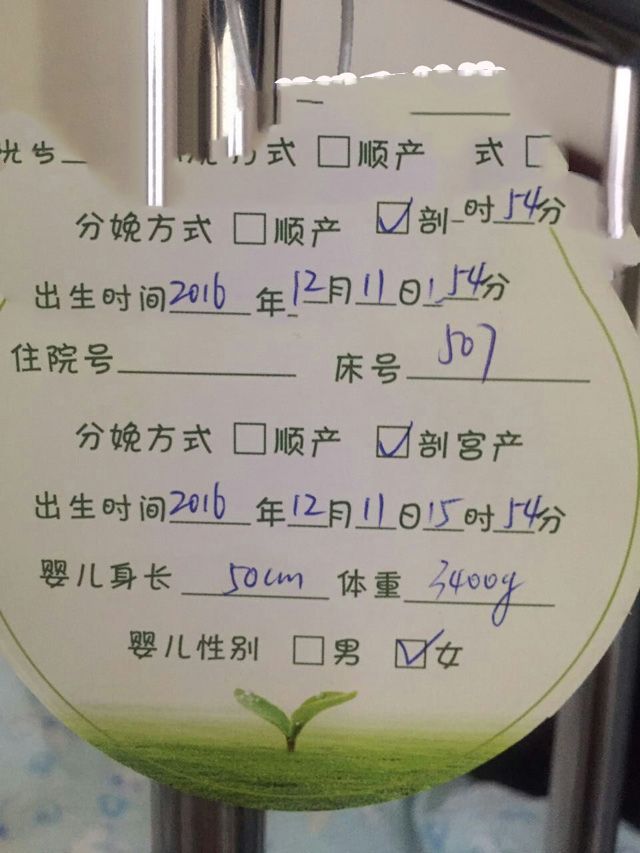 式 □顺产 式
分娩方式 □顺产 ☑剖 时54分
出生时间2016年12月11日1 54分
住院号 床号507
分娩方式 □顺产 ☑剖宫产
出生时间2016年12月11日15时54分
婴儿身长 50cm 体重3400g
婴儿性别 □男 ☑女